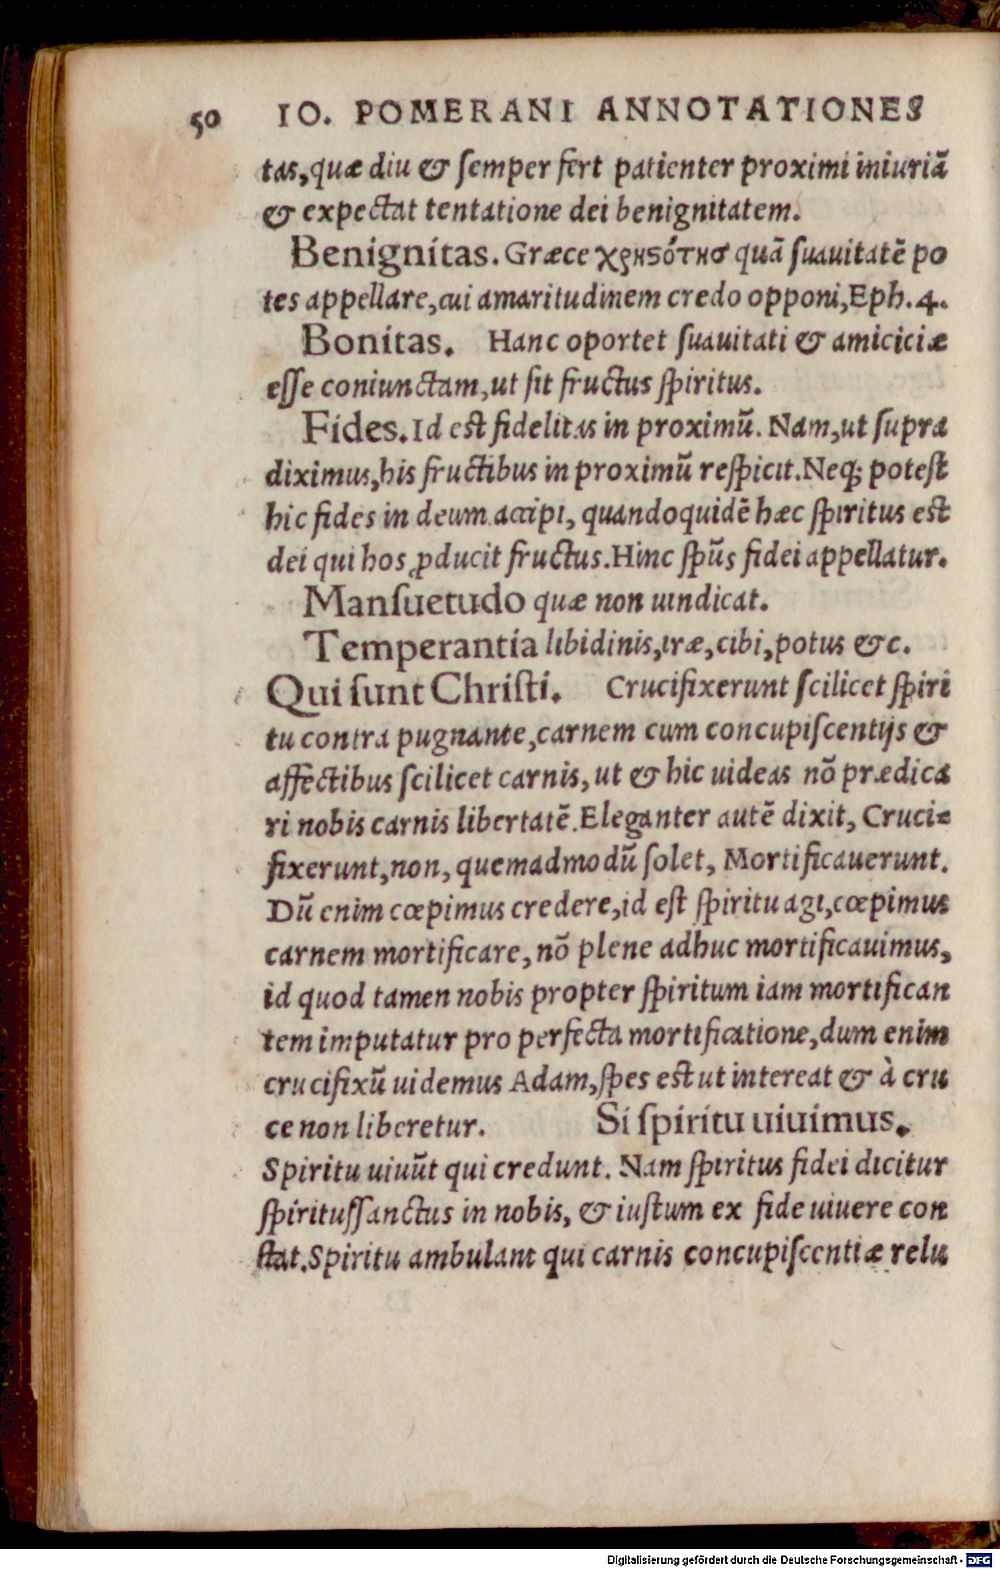 50 IO. POMERANI ANNOTATIONES
tas, quæ diu & ſemper fert patienter proximi iniuriã
& expectat tentatione dei benignitatem.
Benignitas. Græce χρηϛότης quã ſuauitatẽ po
tes appellare, cui amaritudinem credo opponi, Eph. 4.
Bonitas. Hanc oportet ſuauitati & amiciciæ
eſſe coniunctam, ut ſit fructus ſpiritus.
Fides. Id est fidelitas in proximũ. Nam, ut ſupra
diximus, his fructibus in proximũ reſpicit. Neq; potest
hic fides in deum accipi, quandoquidẽ hæc ſpiritus est
dei qui hos ꝓducit fructus. Hinc ſpũs fidei appellatur.
Manſuetudo quæ non uindicat.
Temperantia libidinis, iræ, cibi, potus &c.
Qui ſunt Chriſti. Crucifixerunt ſcilicet ſpiri
tu contra pugnante, carnem cum concupiſcentijs &
affectibus ſcilicet carnis, ut & hic uideas nõ prædica
ri nobis carnis libertatẽ. Eleganter autẽ dixit, Cruci=
fixerunt, non, quemadmodũ ſolet, Mortificauerunt.
Dũ enim cœpimus credere, id est ſpiritu agi, cœpimus
carnem mortificare, nõ plene adhuc mortificauimus,
id quod tamen nobis propter ſpiritum iam mortifican
tem imputatur pro perfecta mortificatione, dum enim
crucifixũ uidemus Adam, ſpes est ut intereat & à cru
ce non liberetur. Si ſpiritu uiuimus.
Spiritu uiuũt qui credunt. Nam ſpiritus fidei dicitur
ſpirituſſanctus in nobis, & iuſtum ex fide uiuere con
ſtat. Spiritu ambulant qui carnis concupiſcentiæ relu
Digitalisierung gefördert durch die Deutsche Forschungsgemeinschaft - DFG